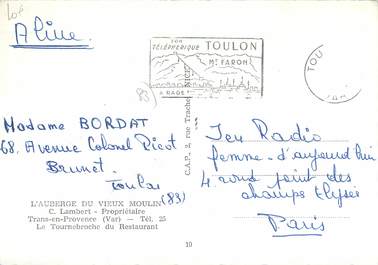 10F
Aline.
SON
TÉLÉPHERIQUE TOULON
Mt FARON
SA RADE
TOU
VAR
(83)
Madame BORDAT
68, Avenue Colonel Picot
Brunet.
Toulon
(83)
Jeu Radio
femme-d'aujourd'hui
4 rond point des
champs Elysée
Paris
C.A.P., 2, rue Trachel, NICE
L'AUBERGE DU VIEUX MOULIN
C. Lambert - Propriétaire
Trans-en-Provence (Var) — Tél. 25
Le Tournebroche du Restaurant
10